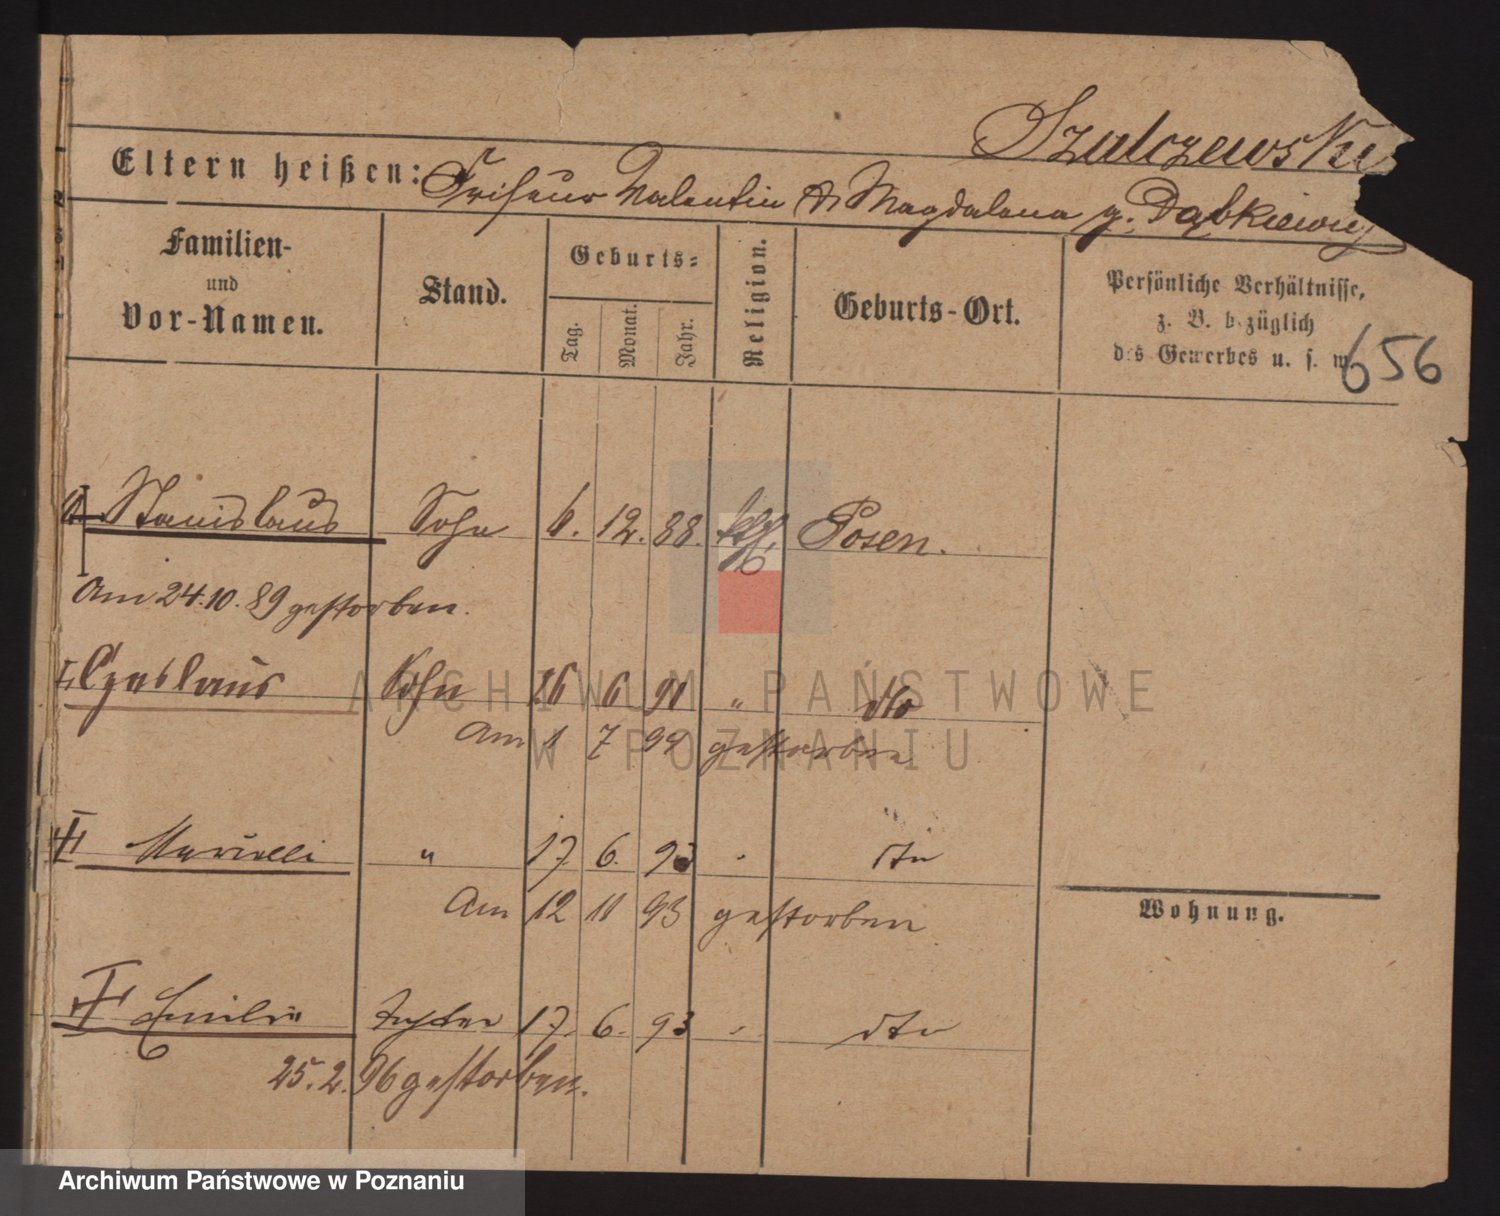 Szulczewski
Eltern heißen: Friseur Valentin & Magdalena g. Dąbkiewicz
Familien- und Vor-Namen.
Stand.
Geburts:
Tag.
Monat.
Jahr.
Religion.
Geburts-Ort.
Persönliche Verhältnisse,
z. B. bezüglich
des Gewerbes u. s. w.
656
Stanislaus Sohn 6. 12. 88. kth. Posen.
Am 24.10.89 gestorben.
Czeslaus Sohn 26 6 91 " dto
Am 1 7 99 gestorben
" 17. 6. 93 dto
Am 12 11 93 gestorben
Wohnung.
Emilie Tochter 17. 6. 93 " dto
25.2.96 gestorben.
ARCHIWUM PAŃSTWOWE
W POZNANIU
Archiwum Państwowe w Poznaniu